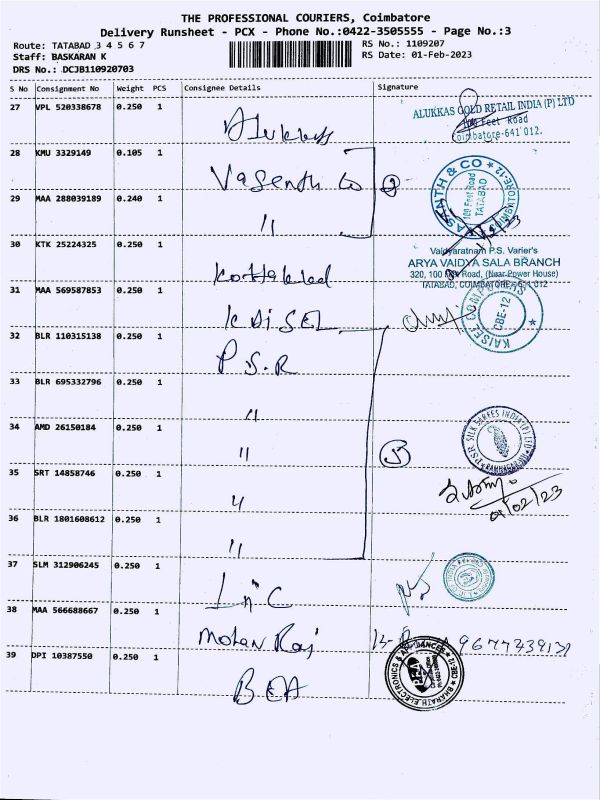 THE PROFESSIONAL COURIERS, Coimbatore
Delivery Runsheet - PCX - Phone No.:0422-3505555 - Page No.:3
Route: TATABAD 3 4 5 6 7
RS No.: 1109207
Staff: BASKARAN K
RS Date: 01-Feb-2023
DRS No.: DCJB110920703
S No Consignment No Weight PCS Consignee Details Signature
27 VPL 520338678 0.250 1 Alukkas
ALUKKAS GOLD RETAIL INDIA (P) LTD
100 Feet Road
Coimbatore-641 012.
28 KMU 3329149 0.105 1 Vasenth Co 2
VASANTH & CO COIMBATORE-12
100 Feet Road
TATABAD
29 MAA 288039189 0.240 1 "
30 KTK 25224325 0.250 1 Kottakkal
Vaidyaratnam P.S. Varier's
ARYA VAIDYA SALA BRANCH
320, 100 Feet Road, (Near Power House)
TATABAD, COIMBATORE-641 012
31 MAA 569587853 0.250 1 KAISEL
KAISEL
CBE-12
32 BLR 110315138 0.250 1 P.S.R
33 BLR 695332796 0.250 1 "
34 AMD 26150184 0.250 1 " 5
PSR SILK SAREES INDIA (P) LTD
35 SRT 14858746 0.250 1 "
01/02/23
36 BLR 1801608612 0.250 1 "
37 SLM 312906245 0.250 1 LIC
38 MAA 566688667 0.250 1 Mohan Raj
39 DPI 10387550 0.250 1 BEA
BHARATH ELECTRONICS & APPLIANCES CBE-12
BEA